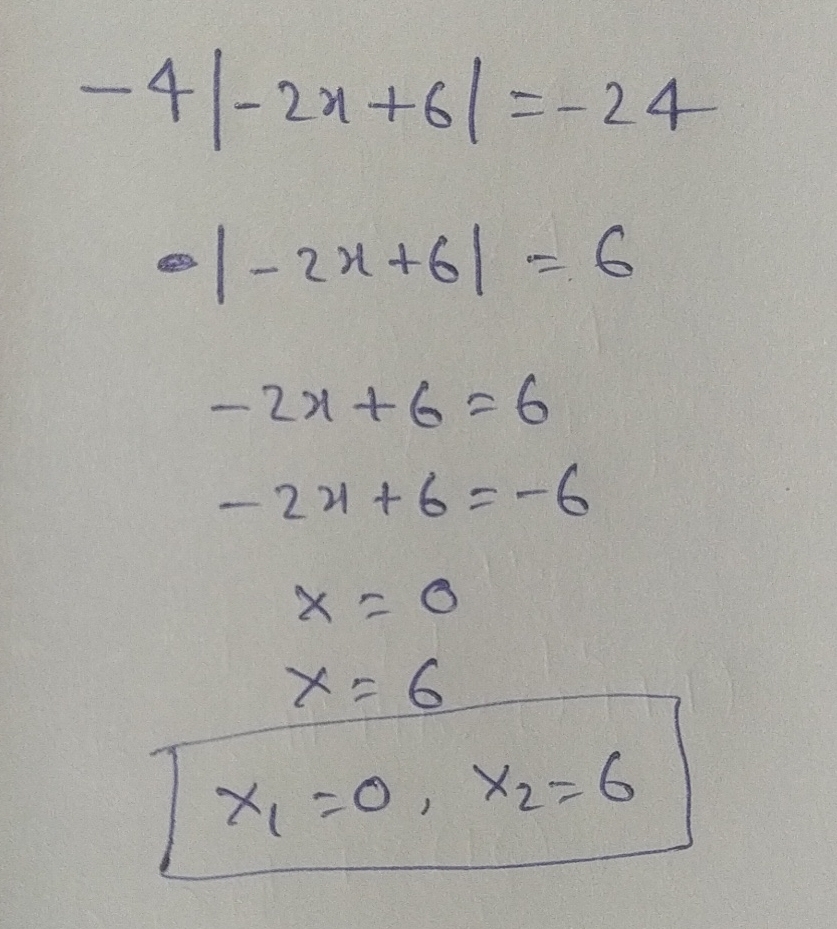 -4|-2x+6|=-24
|-2x+6| = 6
-2x+6=6
-2x+6=-6
x=0
x=6
x₁=0, x₂=6